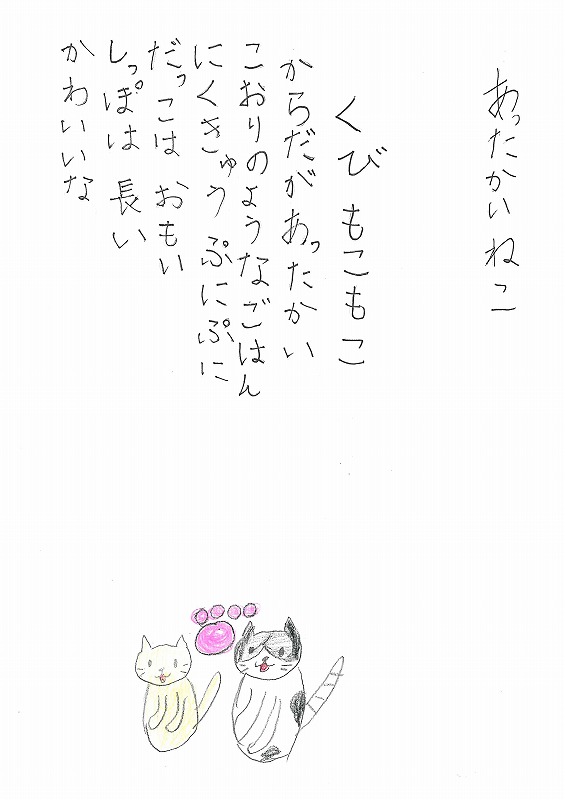 あったかいねこ
くび もこもこ
からだがあったかい
こおりのようなごはん
にくきゅう ぷにぷに
だっこは おもい
しっぽは 長い
かわいいな